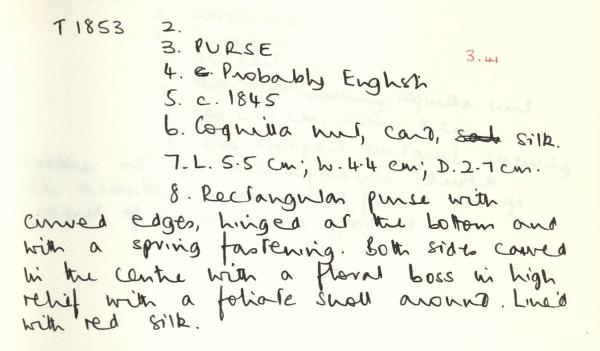 T 1853 2.
3. PURSE 3.41
4. Probably English
5. c. 1845
6. Coquilla nut, card, silk.
7. L. 5.5 cm; W. 4.4 cm; D. 2.7 cm.
8. Rectangular purse with
curved edges, hinged at the bottom and
with a spring fastening. Both sides carved
in the centre with a floral boss in high
relief with a foliate scroll around. Lined
with red silk.